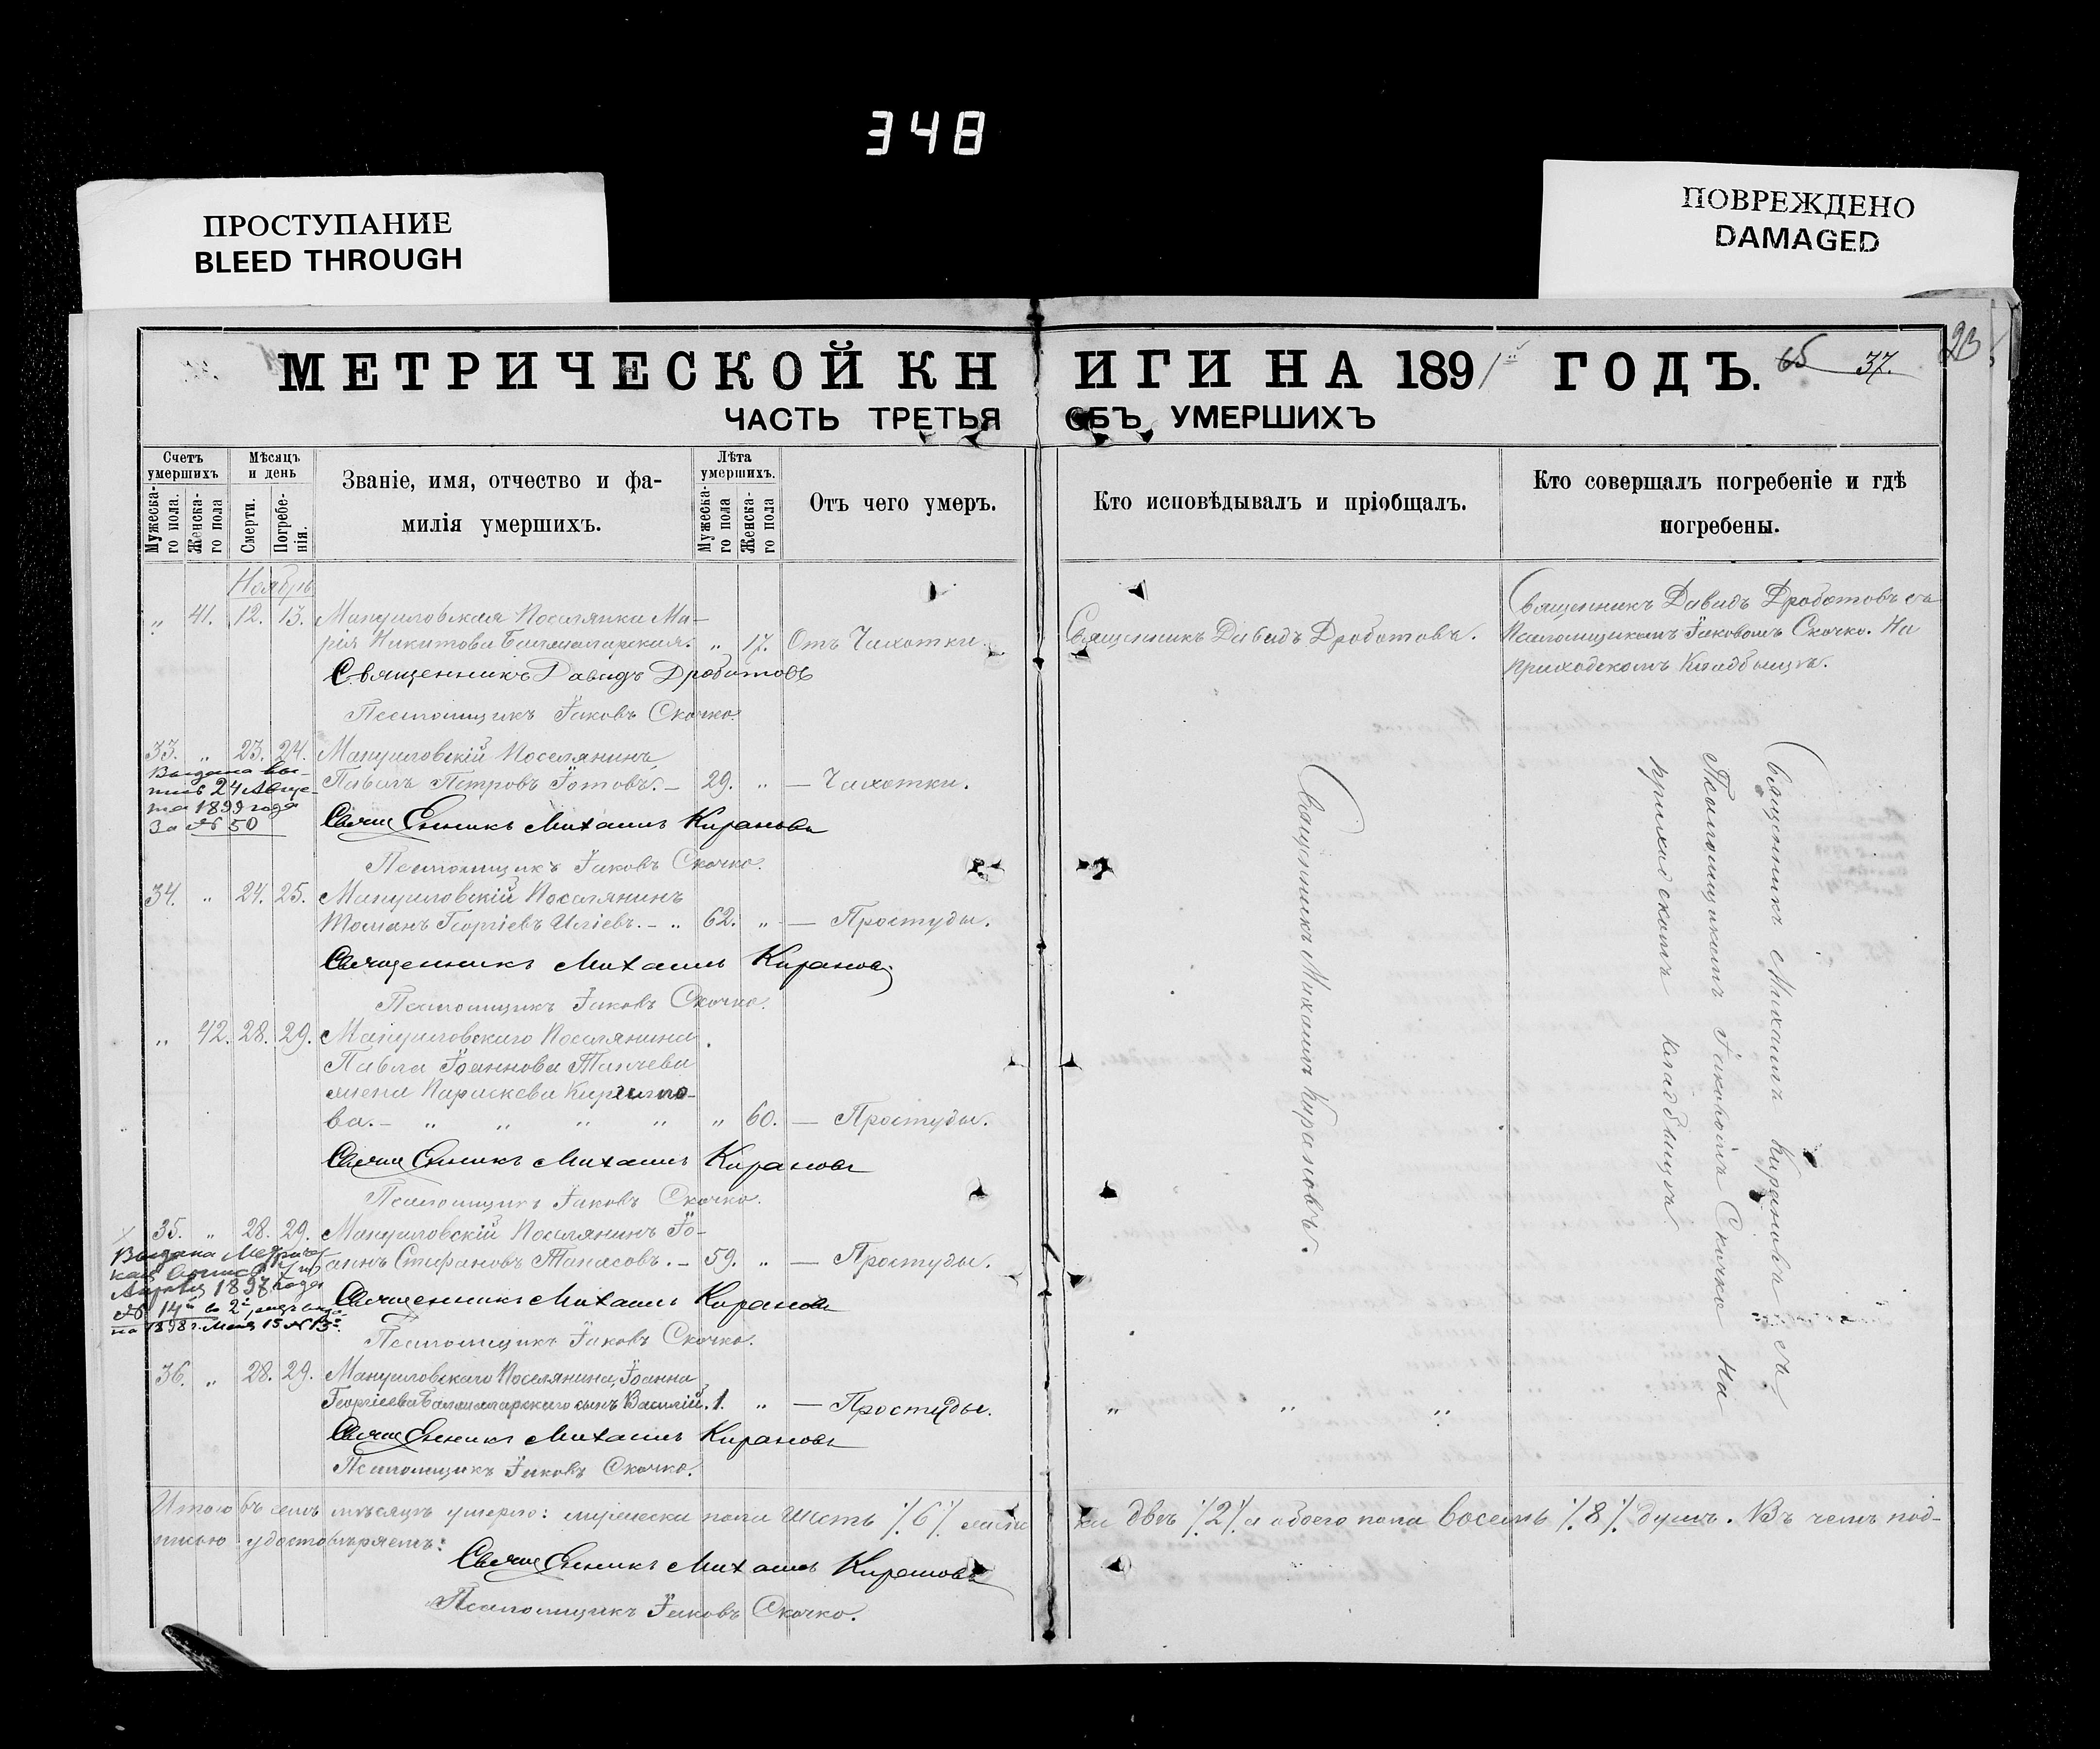 348
ПРОСТУПАНИЕ
BLEED THROUGH
ПОВРЕЖДЕНО
DAMAGED
МЕТРИЧЕСКОЙ КНИГИ НА 1891й ГОДЪ.
65 37.
23
ЧАСТЬ ТРЕТЬЯ ОБЪ УМЕРШИХЪ
Счетъ умершихъ
Мужеска-го пола.
Женска-го пола
Мѣсяцъ и день
Смерти.
Погребе-нія.
Званіе, имя, отчество и фа-
милія умершихъ.
Лѣта умершихъ.
Мужеска-го пола
Женска-го пола
Отъ чего умеръ.
Кто исповѣдывалъ и пріобщалъ.
Кто совершалъ погребеніе и гдѣ
погребены.
Ноябрь
„ 41. 12. 13. Мануиловская Поселянка Ма-
рія Никитова „ 17. Отъ Чахотки.
Священникъ Давидъ Дроботовъ.
Священникъ Давидъ Дроботовъ съ
Псаломщикомъ Іаковомъ Скочко. На
приходскомъ Кладбищѣ.
Священникъ Давидъ Дроботовъ
Псаломщикъ Іаковъ Скочко.
33. „ 23. 24. Мануиловскій Поселянинъ,
Павелъ Петровъ Іотовъ. – 29. „ — Чахотки.
Выдана вы-
пись 24 Авгу-
ста 1899 года
За № 50
Священникъ Михаилъ Кирановъ
Псаломщикъ Іаковъ Скочко.
34. „ 24. 25. Мануиловскій Поселянинъ
Георгіевъ Иліевъ. – „ 62. „ — Простуды.
Священникъ Михаилъ Кирановъ
Псаломщикъ Іаковъ Скочко.
„ 42. 28. 29. Мануиловскаго Поселянина
Павла Іоаннова
жена Параскева Кирилло-
ва. – „ „ „ „ „ 60. — Простуды.
Священникъ Михаилъ Кирановъ
Псаломщикъ Іаковъ Скочко.
35. „ 28. 29. Мануиловскій Поселянинъ Іо-
аннъ Стефановъ Танасовъ. – 59. „ — Простуды.
Выдана Метриче-
Апрѣля 1897 года
№ 14й
1898 г. Мая 15 № 13
Священникъ Михаилъ Кирановъ
Псаломщикъ Іаковъ Скочко.
36. „ 28. 29. Мануиловскаго Поселянина, Іоанна
Георгіева сынъ Василій. 1. „ — Простуды.
„ „ „
Священникъ Михаилъ Кирановъ
Псаломщикъ Іаковъ Скочко.
Священникъ Михаилъ Кирановъ.
Священникъ Михаилъ Кирановъ съ
Псаломщикомъ Іаковомъ Скочко На
приходскомъ кладбищѣ
Итого въ семъ мѣсяцѣ умерло: мужеска пола шесть /6/ женска двѣ /2/ а обоего пола восемь /8/ душъ. Въ чемъ под-
писью удостовѣряемъ:
Священникъ Михаилъ Кирановъ
Псаломщикъ Іаковъ Скочко.